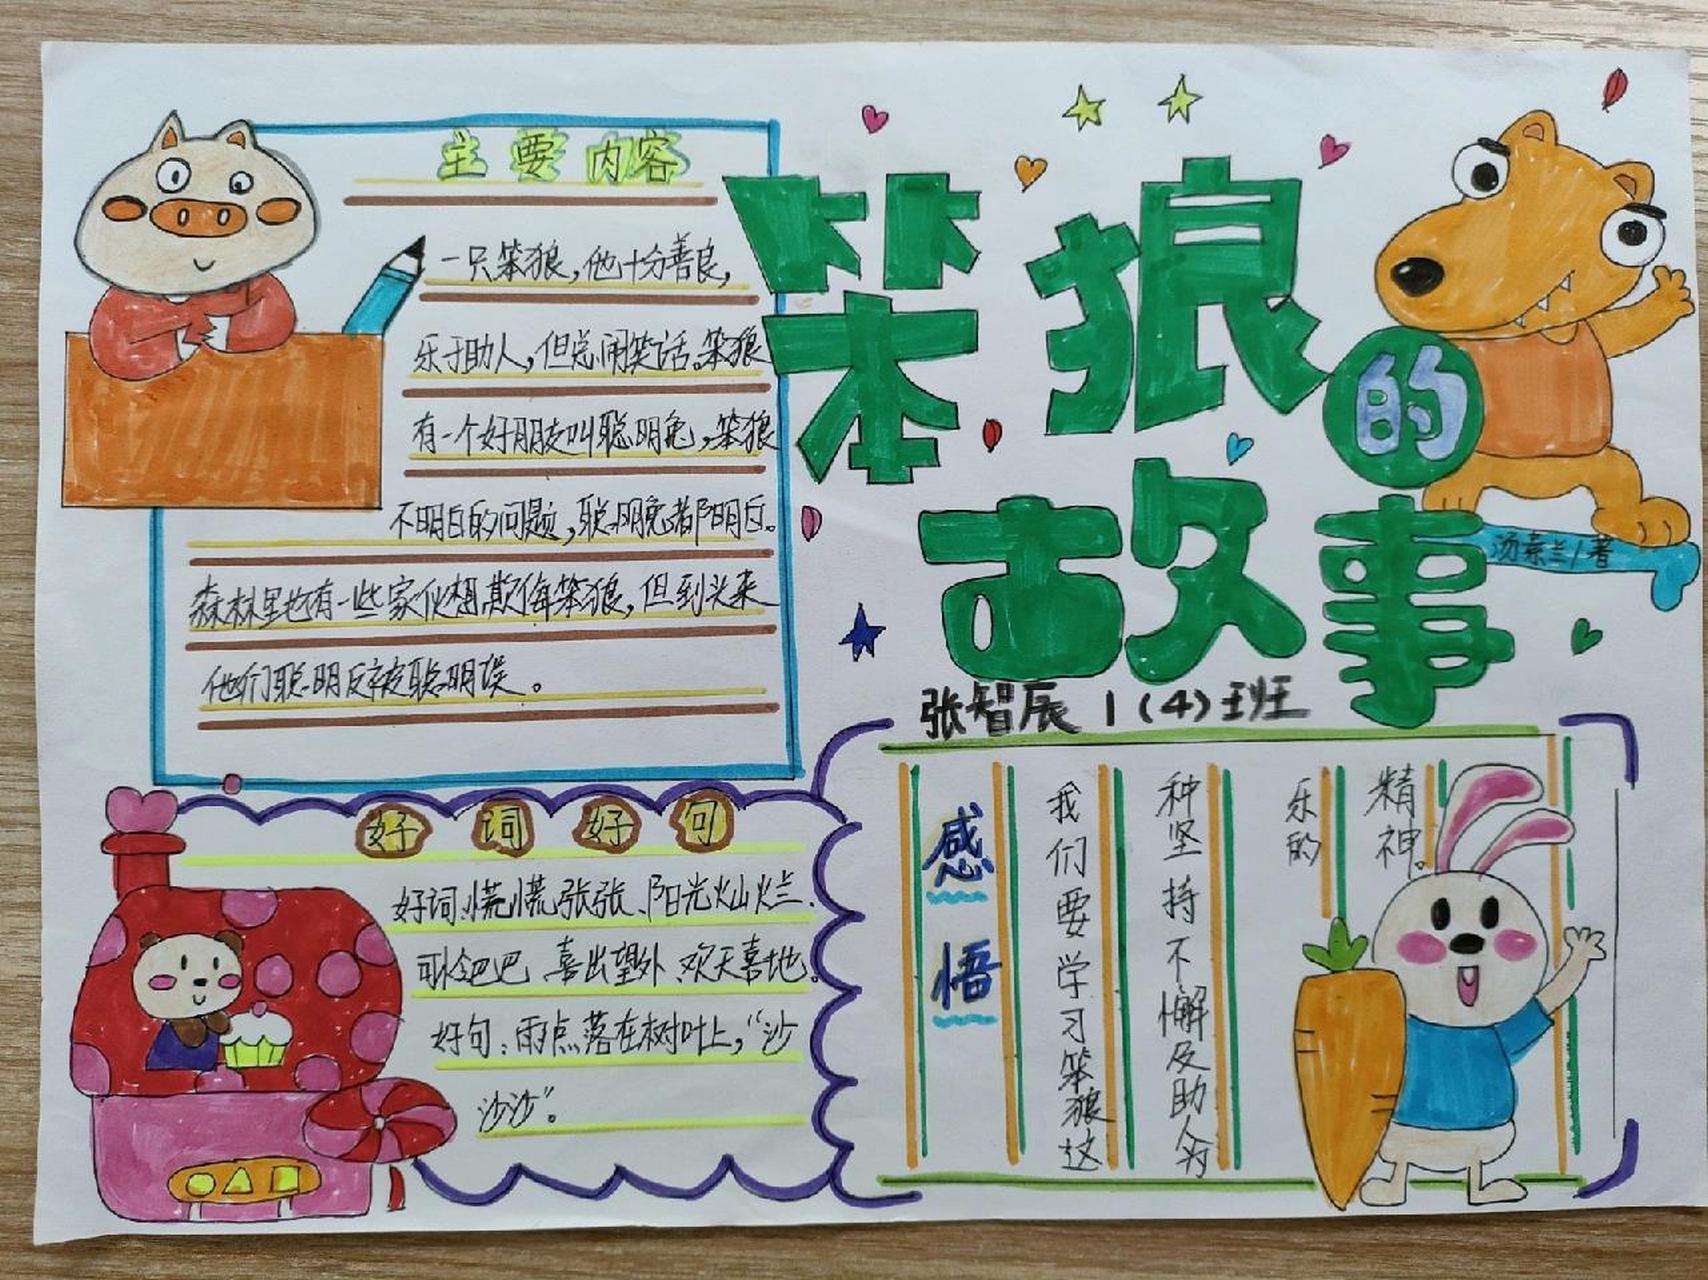 笨狼的
故事
汤素兰/著
张智辰 1(4)班
主要内容
一只笨狼,他十分善良,
乐于助人,但总闹笑话。笨狼
有一个好朋友叫聪明兔,笨狼
不明白的问题,聪明兔都明白。
森林里也有一些家伙想欺侮笨狼,但到头来
他们聪明反被聪明误。
好词好句
好词:慌慌张张、阳光灿烂、
可怜巴巴、喜出望外、欢天喜地。
好句:雨点落在树叶上,“沙
沙沙”。
感悟
我们要学习笨狼这
种坚持不懈及助人为
乐的
精神。